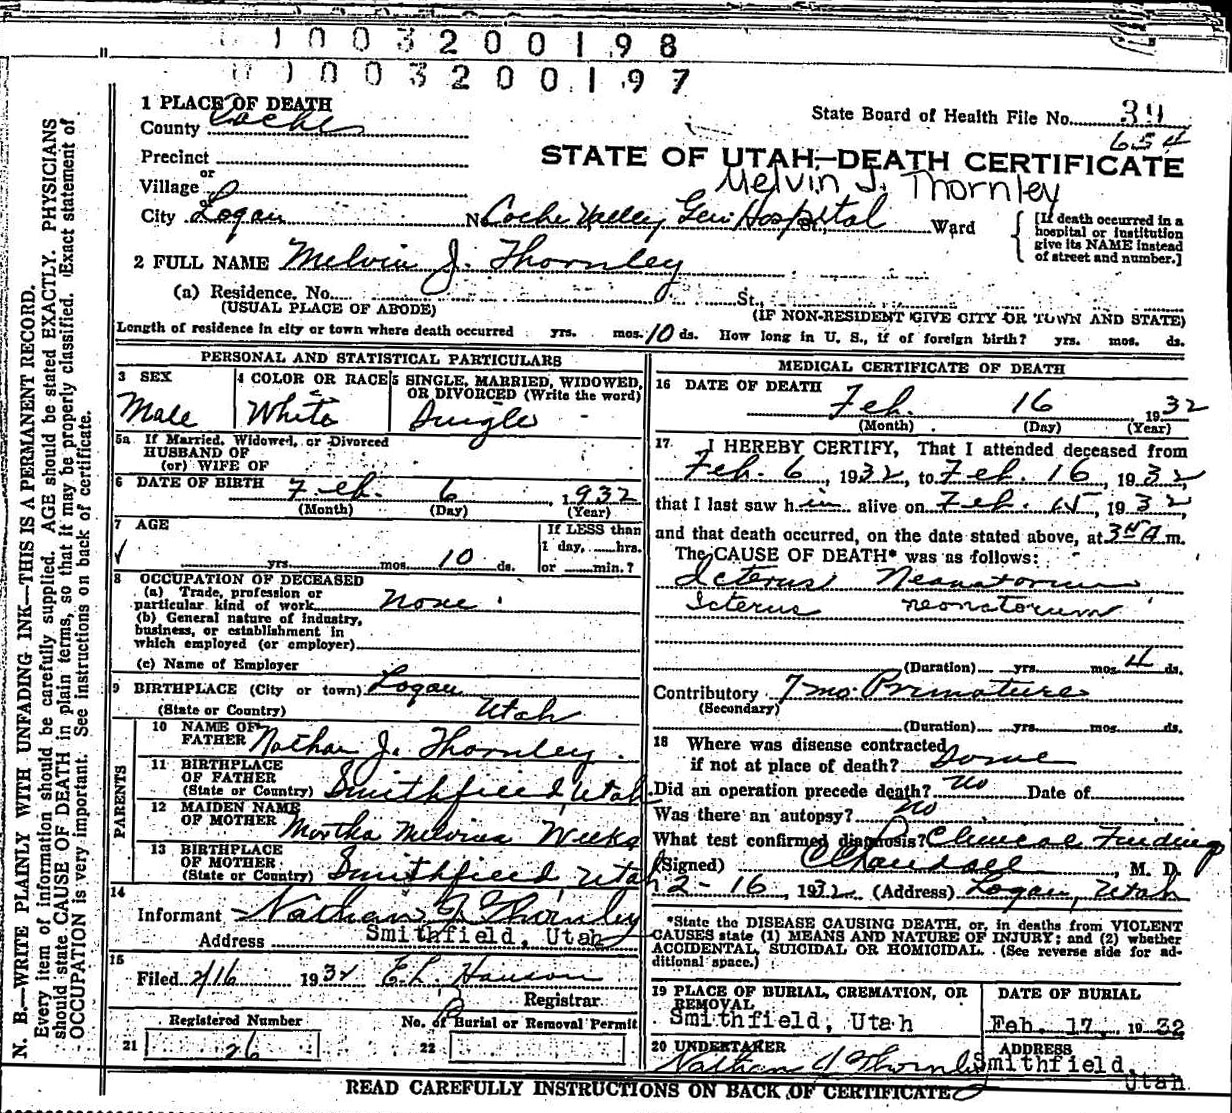 1 0 0 3 2 0 0 1 9 8
1 0 0 3 2 0 0 1 9 7
1 PLACE OF DEATH
County Cache
State Board of Health File No. 39
654
Precinct
or
Village
or
STATE OF UTAH—DEATH CERTIFICATE
Melvin J. Thornley
City Logan No. Cache Valley Gen Hospital St., Ward
[If death occurred in a hospital or institution give its NAME instead of street and number.]
2 FULL NAME Melvin J. Thornley
(a) Residence. No. St.,
(USUAL PLACE OF ABODE) (IF NON-RESIDENT GIVE CITY OR TOWN AND STATE)
Length of residence in city or town where death occurred yrs. mos. 10 ds. How long in U. S., if of foreign birth? yrs. mos. ds.
PERSONAL AND STATISTICAL PARTICULARS
3 SEX
Male
4 COLOR OR RACE
White
5 SINGLE, MARRIED, WIDOWED,
OR DIVORCED (Write the word)
Single
5a If Married, Widowed, or Divorced
HUSBAND OF
(or) WIFE OF
6 DATE OF BIRTH Feb. 6, 1932
(Month) (Day) (Year)
7 AGE
yrs. mos. 10 ds.
If LESS than
1 day, hrs.
or min.?
8 OCCUPATION OF DECEASED
(a) Trade, profession or
particular kind of work none
(b) General nature of industry,
business, or establishment in
which employed (or employer)
(c) Name of Employer
9 BIRTHPLACE (City or town) Logan
(State or Country) Utah
PARENTS
10 NAME OF
FATHER Nathan J. Thornley
11 BIRTHPLACE
OF FATHER
(State or Country) Smithfield, Utah
12 MAIDEN NAME
OF MOTHER Martha Melvina Weeks
13 BIRTHPLACE
OF MOTHER
(State or Country) Smithfield Utah
14
Informant Nathan J Thornley
Address Smithfield, Utah
15
Filed 2/16 1932 E.L. Hanson
Registrar
Registered Number
21 26
No. of Burial or Removal Permit
22
MEDICAL CERTIFICATE OF DEATH
16 DATE OF DEATH
Feb. 16 1932
(Month) (Day) (Year)
17 I HEREBY CERTIFY, That I attended deceased from
Feb. 6, 1932, to Feb. 16, 1932,
that I last saw him alive on Feb. 15, 1932,
and that death occurred, on the date stated above, at m.
The CAUSE OF DEATH* was as follows:
Icterus Neonatorum
Icterus neonatorum
(Duration) yrs. mos. 4 ds.
Contributory 7 mo Premature
(Secondary)
(Duration) yrs. mos. ds.
18 Where was disease contracted
if not at place of death?
Did an operation precede death? no Date of
Was there an autopsy? no
What test confirmed diagnosis? Clinical Finding
(Signed) M. D.
2-16, 1932 (Address) Logan, Utah
*State the DISEASE CAUSING DEATH, or, in deaths from VIOLENT
CAUSES state (1) MEANS AND NATURE OF INJURY; and (2) whether
ACCIDENTAL, SUICIDAL OR HOMICIDAL. (See reverse side for ad-
ditional space.)
19 PLACE OF BURIAL, CREMATION, OR
REMOVAL
Smithfield, Utah
DATE OF BURIAL
Feb. 17, 1932
20 UNDERTAKER
Nathan J Thornley
ADDRESS
Smithfield,
Utah
READ CAREFULLY INSTRUCTIONS ON BACK OF CERTIFICATE
N. B.—WRITE PLAINLY WITH UNFADING INK—THIS IS A PERMANENT RECORD.
Every item of information should be carefully supplied. AGE should be stated EXACTLY. PHYSICIANS
should state CAUSE OF DEATH in plain terms, so that it may be properly classified. Exact statement of
OCCUPATION is very important. See instructions on back of certificate.